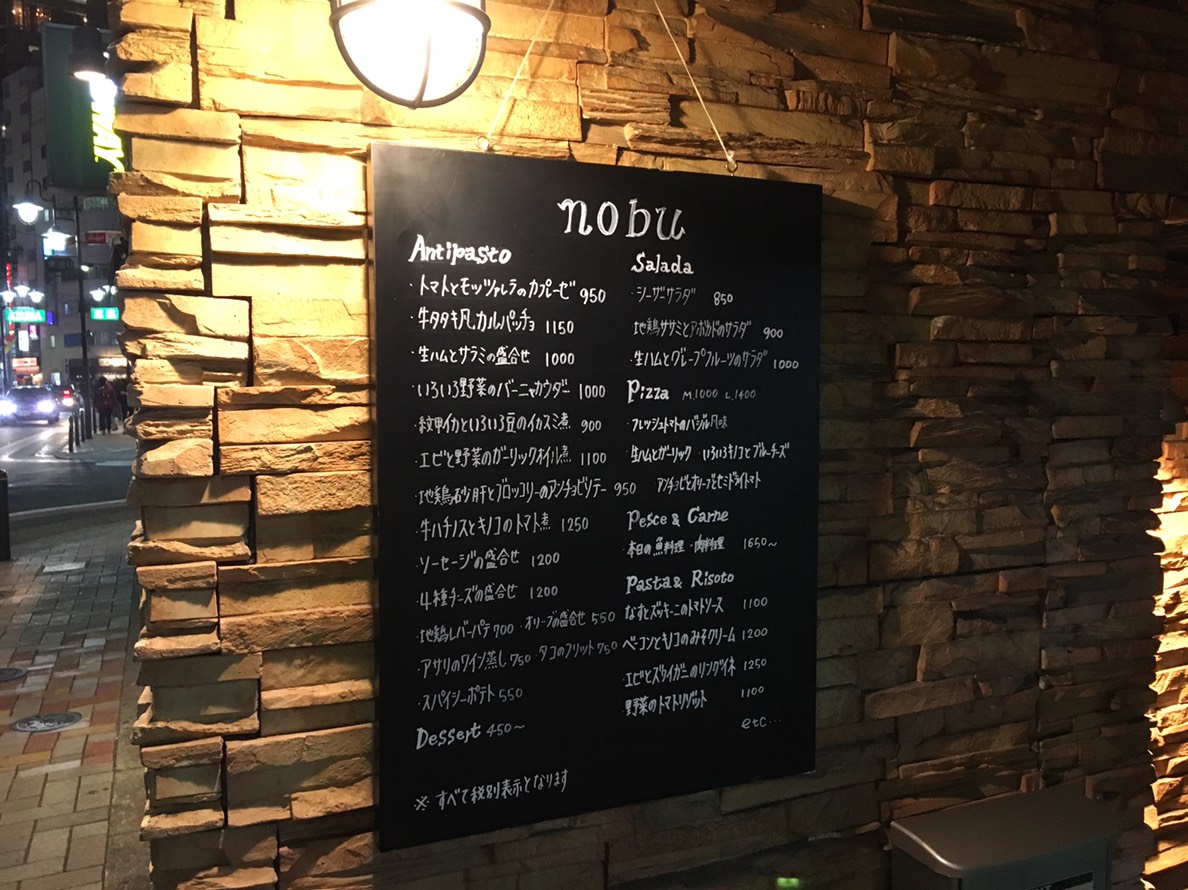 nobu
Antipasto
・トマトとモッツァレラのカプレーゼ 950
・牛タタキ凡カルパッチョ 1150
・生ハムとサラミの盛合せ 1000
・いろいろ野菜のバーニャカウダー 1000
・紋甲イカといろいろ豆のイカスミ煮 900
・エビと野菜のガーリックオイル煮 1100
・地鶏砂肝とブロッコリーのアンチョビソテー 950
・牛ハチノスとキノコのトマト煮 1250
・ソーセージの盛合せ 1200
・4種チーズの盛合せ 1200
・地鶏レバーパテ 700 ・オリーブの盛合せ 550
・アサリのワイン蒸し 750 ・タコのフリット 750
・スパイシーポテト 550
Dessert 450~
※ すべて税別表示となります
Salada
・シーザーサラダ 850
地鶏ササミとアボカドのサラダ 900
・生ハムとグレープフルーツのサラダ 1000
Pizza M.1000 L.1400
・フレッシュトマトのバジル風味
・生ハムとガーリック いろいろキノコとブルーチーズ
アンチョビとオリーブとセミドライトマト
Pesce & Carne
本日の魚料理・肉料理 1650~
Pasta & Risoto
なすとズッキーニのトマトソース 1100
ベーコンとキノコのみそクリーム 1200
エビとズワイガニのリングイネ 1250
野菜のトマトリゾット 1100
etc…